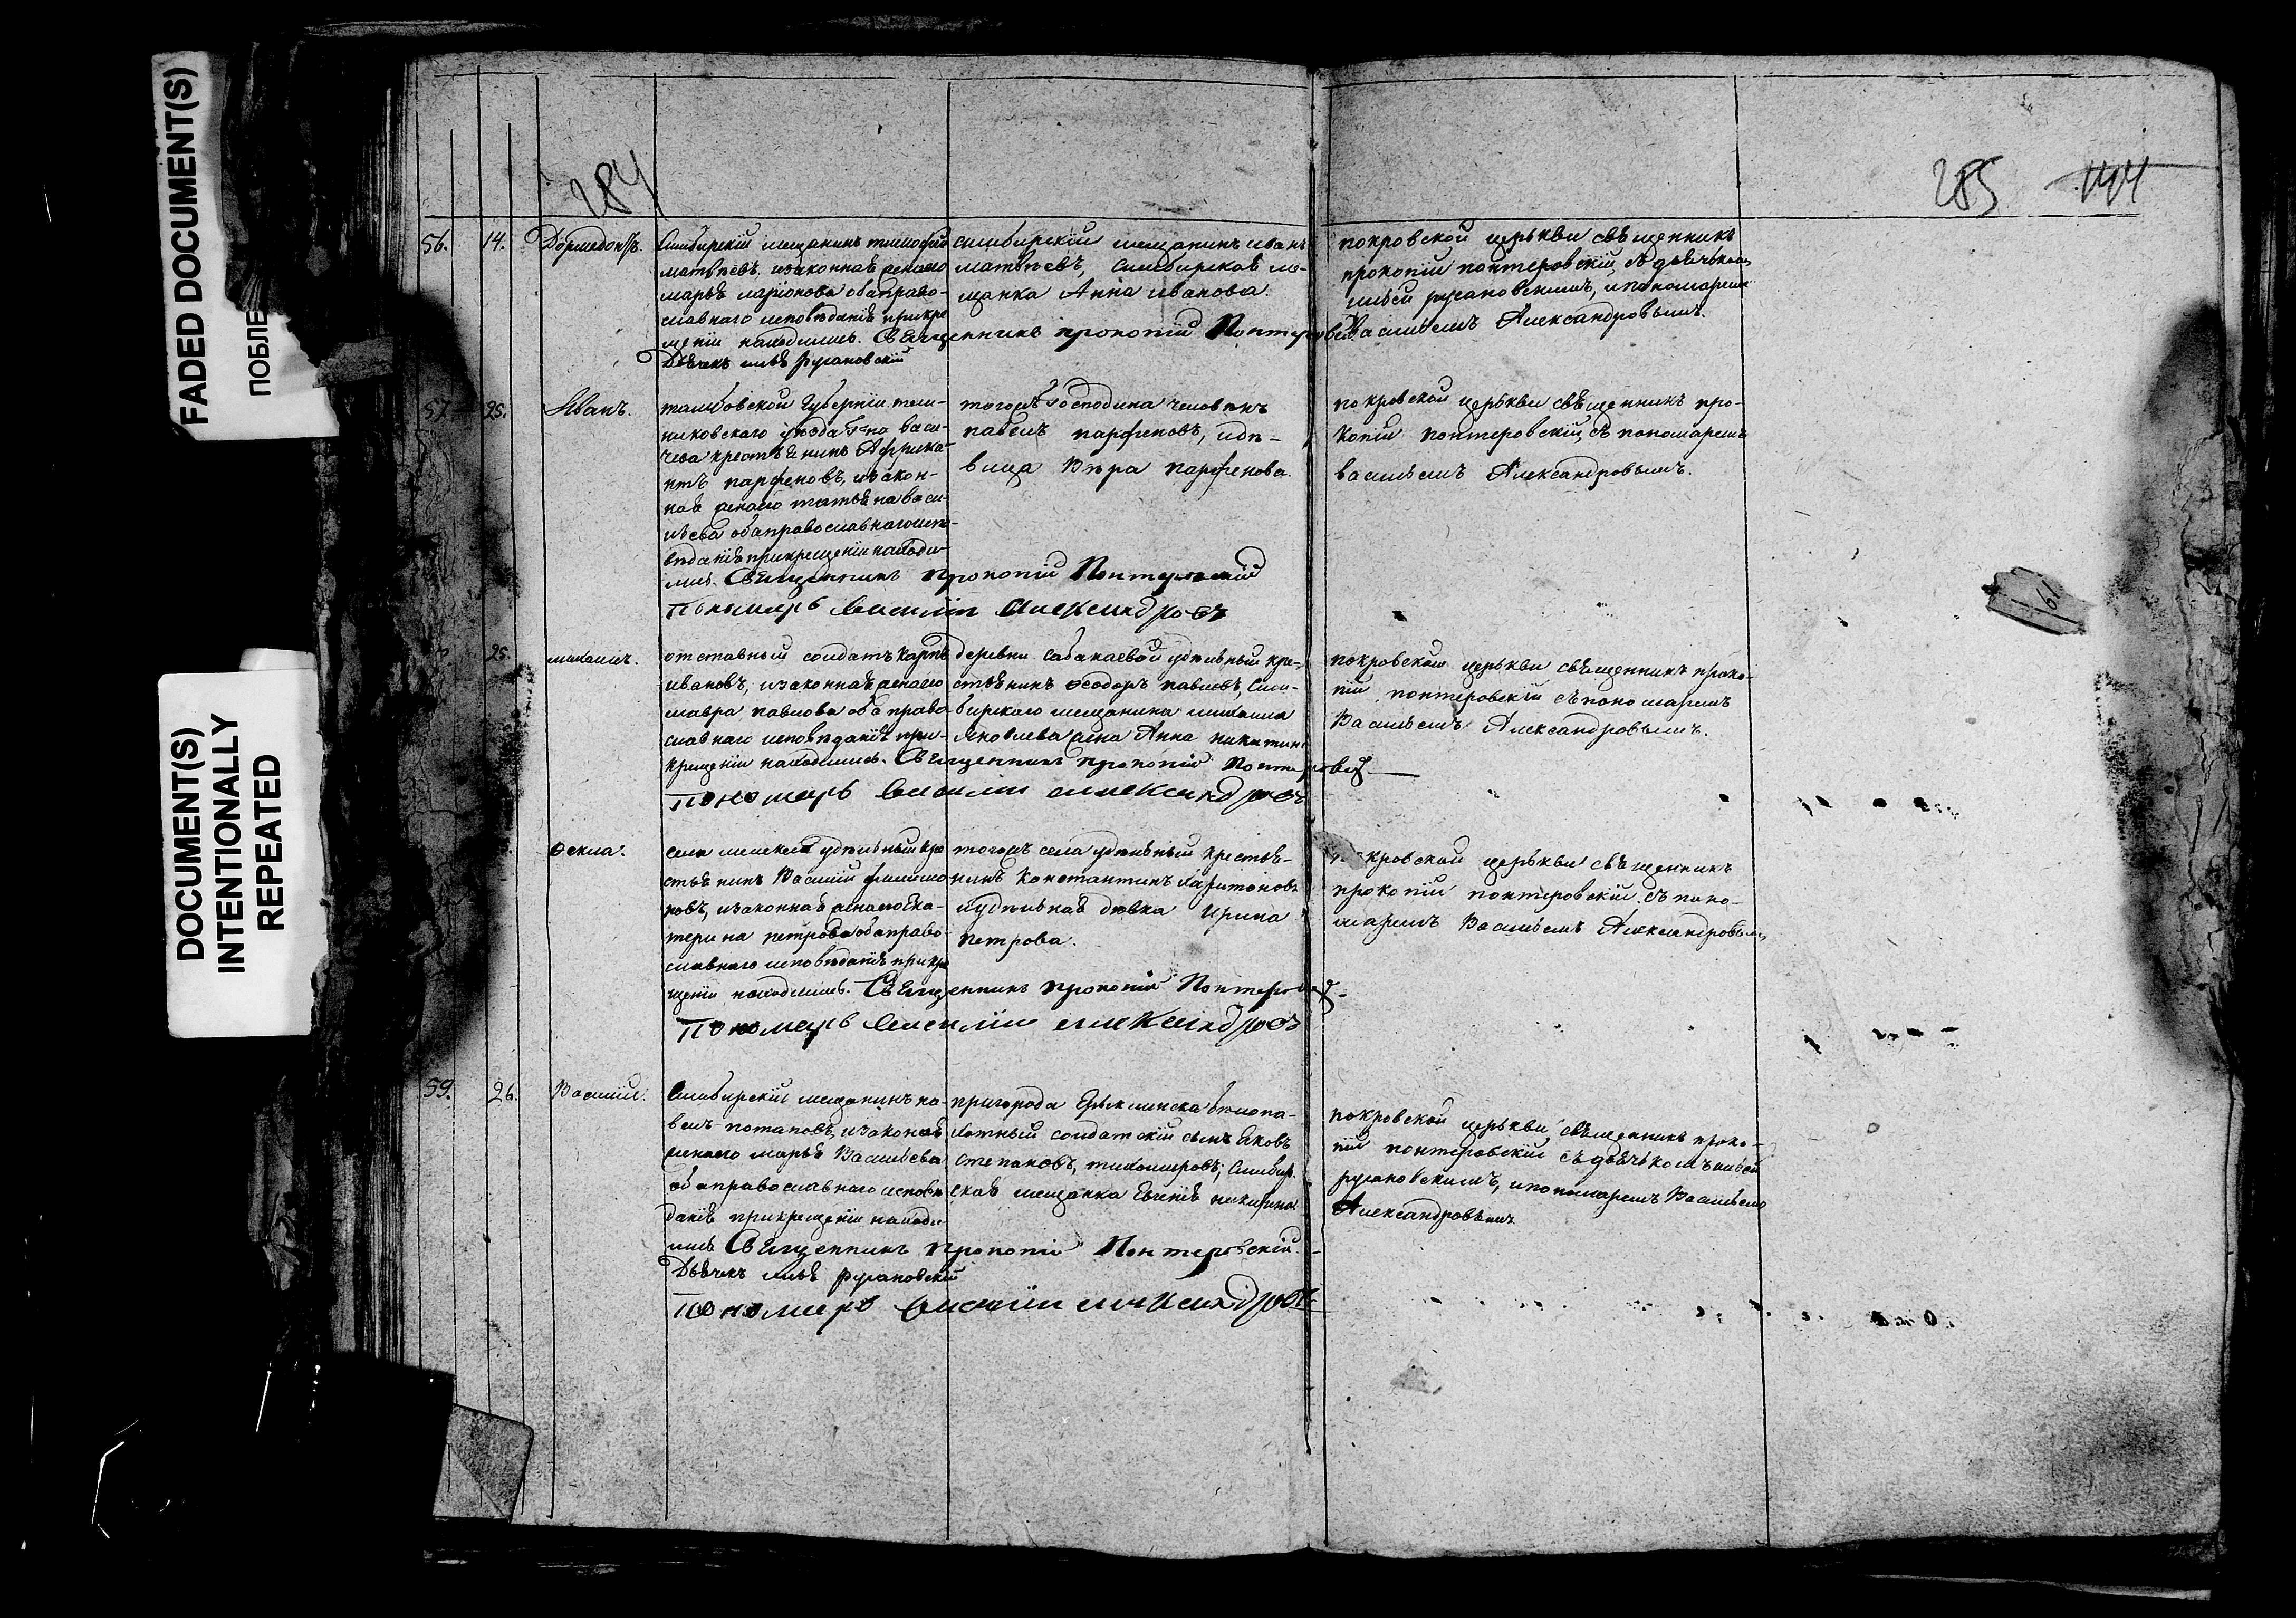 FADED DOCUMENT(S)
ПОБЛЕ
DOCUMENT(S)
INTENTIONALLY
REPEATED
284
285
144
56.
14.
Симбирскій мещанинъ тимофей
матвѣевъ, изаконная
марья ларіонова оба право-
славнаго исповѣданія прикре
щеніи находились. Священникъ прокопій
Дьячекъ илья русановскій
симбирскій мещанинъ иванъ
матвѣевъ, Симбирская ме-
щанка Анна иванова.
покровской церькви священникъ
прокопій понтеровскій, съ дьячькомъ
ильей русановскимъ, ипономаремъ
Васильемъ Александровымъ.
57
25.
Иванъ.
тамбовской Губерніи тем-
никовскаго уѣзда г-на васи-
чева крестьянинъ Африка-
нтъ парфеновъ, изакон-
ная татьяна васи-
льева оба православнаго испо-
вѣданія прикрещеніи находи-
лись. Священникъ Прокопій Понтеровскій
Пономарь василій Александровъ
тогожъ Господина человѣкъ
павелъ парфеновъ, идѣ-
вица Вѣра парфенова
покровской церькви священникъ про-
копій понтеровскій, съ пономаремъ
васильемъ Александровымъ.
25.
михаилъ.
отставный солдатъ карпъ
ивановъ, изаконная
мавра павлова оба право
славнаго исповѣданія при-
крещеніи находились. Священникъ прокопій
Пономарь василій александровъ
деревни сабакаевой удѣльный кре-
стьянинъ Ѳеодоръ павловъ, Сим-
бирскаго мещанина михаила
яковлева жена Анна никитина
покровской церькви священникъ проко-
пій понтеровскій съ пономаремъ
Васильемъ Александровымъ.
Ѳекла.
села удѣльный кре
стьянинъ Василій филимо
новъ, изаконная Ека-
терина петрова оба право-
славнаго исповѣданія прикре
щеніи находились. Священникъ прокопій
Пономарь василій александровъ
тогожъ села удѣльный крестья-
нинъ Константинъ Харитоновъ
иудѣльная дѣвка Ирина
петрова.
покровской церькви священникъ
прокопій понтеровскій съ поно-
маремъ Васильемъ Александровымъ
59.
26.
Василій.
Симбирскій мещанинъ па-
велъ потаповъ, изаконная
марья Васильева
оба православнаго исповѣ
данія прикрещеніи находи-
лись Священникъ Прокопій Понтеровскій.
Дьячекъ илья русановскій
Пономарь василій александровъ
пригорода Ерыклинска бѣлопа-
хотный солдатскій сынъ яковъ
степановъ, тихомировъ; Симбир-
ская мещанка Евгенія
покровской церькви священникъ проко-
пій понтеровскій съ дьячькомъ ильей
русановскимъ, ипономаремъ Васильемъ
Александровымъ